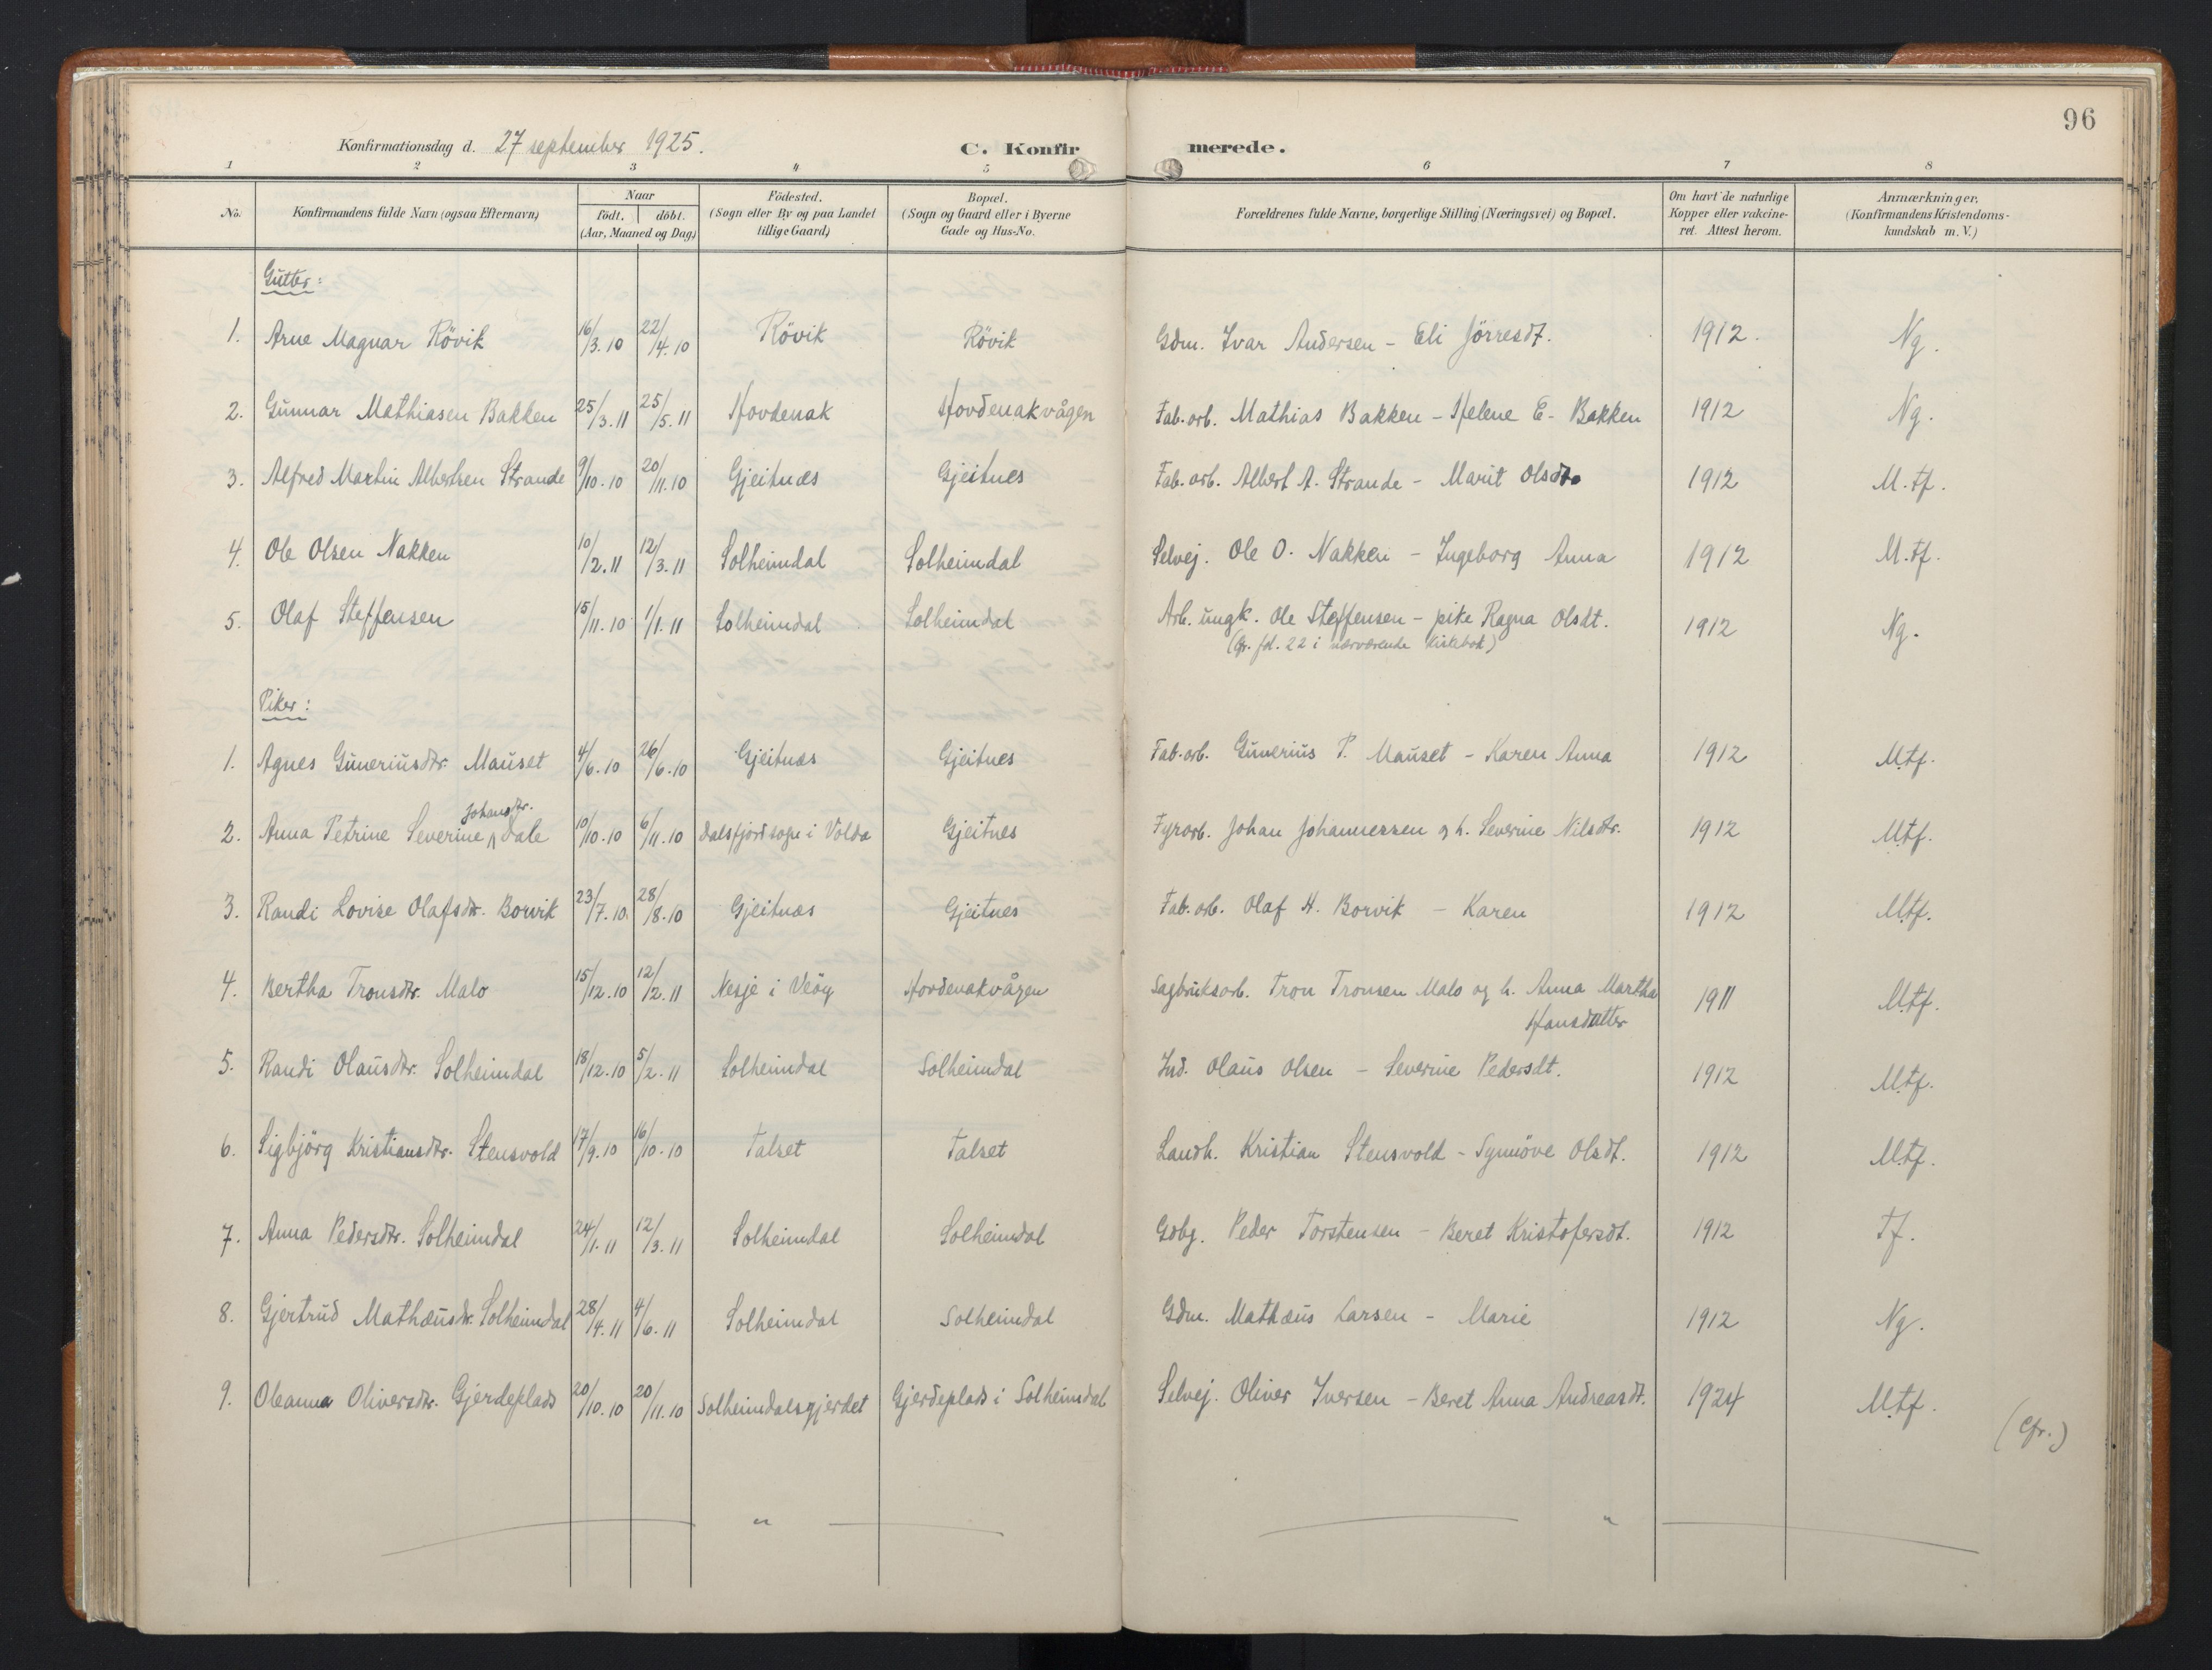 96
Konfirmationsdag d. 27 september 1925.
C. Konfirmerede.
1 2 3 4 5 6 7 8
No. Konfirmandens fulde Navn (ogsaa Efternavn)
Naar födt. döbt. (Aar, Maaned og Dag)
Födested. (Sogn eller By og paa Landet tillige Gaard)
Bopæl. (Sogn og Gaard eller i Byerne Gade og Hus-No.
Forældrenes fulde Navne, borgerlige Stilling (Næringsvei) og Bopæl.
Om havt de naturlige Kopper eller vakcineret. Attest herom.
Anmærkninger. (Konfirmandens Kristendomskundskab m. V.)
Gutter:
1. Arne Magnar Rövik 16/3.10 22/4.10 Rövik Rövik Gdm. Ivar Andersen - Eli Jörresdt. 1912. Ng.
2. Gunnar Mathiasen Bakken 25/3.11 25/5.11 Hovdenak Hovdenakvågen Fab.arb. Mathias Bakken - Helene E. Bakken 1912 Ng.
3. Alfred Martin Albertsen Strande 9/10.10 20/11.10 Gjeitnæs Gjeitnes Fab.arb. Albert A. Strande - Marit Olsdtr. 1912 M.tf.
4. Ole Olsen Nakken 10/2.11 12/3.11 Solheimdal Solheimdal Selvej. Ole O. Nakken - Ingeborg Anna 1912 M.tf.
5. Olaf Steffensen 15/11.10 1/1.11 Solheimdal Solheimdal Arb. ungk. Ole Steffensen - pike Ragna Olsdt. 1912 Ng.
(Cfr. fol. 22 i nærværende kirkebok)
Piker:
1. Agnes Guneriusdtr. Mauset 4/6.10 26/6.10 Gjeitnæs Gjeitnes Fab.arb. Gunerius P. Mauset - Karen Anna 1912 Mtf.
2. Anna Petrine Severine Johansdtr. Dale 10/10.10 6/11.10 Dalsfjord sogn i Volda Gjeitnes Fyrarb. Johan Johannessen og h. Severine Nilsdtr. 1912 Mtf.
3. Randi Lovise Olafsdtr. Borvik 23/7.10. 28/8.10 Gjeitnæs Gjeitnes Fab.arb. Olaf H. Borvik - Karen 1912 Mtf.
4. Bertha Tronsdtr. Malo 15/12.10 12/2.11 Nesje i Veöy Hovdenakvågen Sagbruksarb. Tron Tronsen Malo og h. Anna Martha 1911 Mtf.
Hansdatter
5. Randi Olausdtr. Solheimdal 18/12.10 5/2.11 Solheimdal Solheimdal Ind. Olaus Olsen - Severine Pedersdt. 1912 Mtf.
6. Sigbjörg Kristiansdtr. Stensvold 17/9.10 16/10.10 Talset Talset Landh. Kristian Stensvold - Synnöve Olsdt. 1912 Mtf.
7. Anna Pedersdtr. Solheimdal 24/1.11 12/3.11 Solheimdal Solheimdal Gdbg. Peder Torstensen - Beret Kristofersdt. 1912 Tf.
8. Gjertrud Mathæusdtr. Solheimdal 28/4.11 4/6.11 Solheimdal Solheimdal Gdm. Mathæus Larsen - Marie 1912 Ng.
9. Oleanna Oliversdtr. Gjerdeplads 20/10.10 20/11.10 Solheimdalsgjerdet Gjerdeplads i Solheimdal Selvej. Oliver Iversen - Beret Anna Andreasdt. 1924 Mtf. (Cfr.)